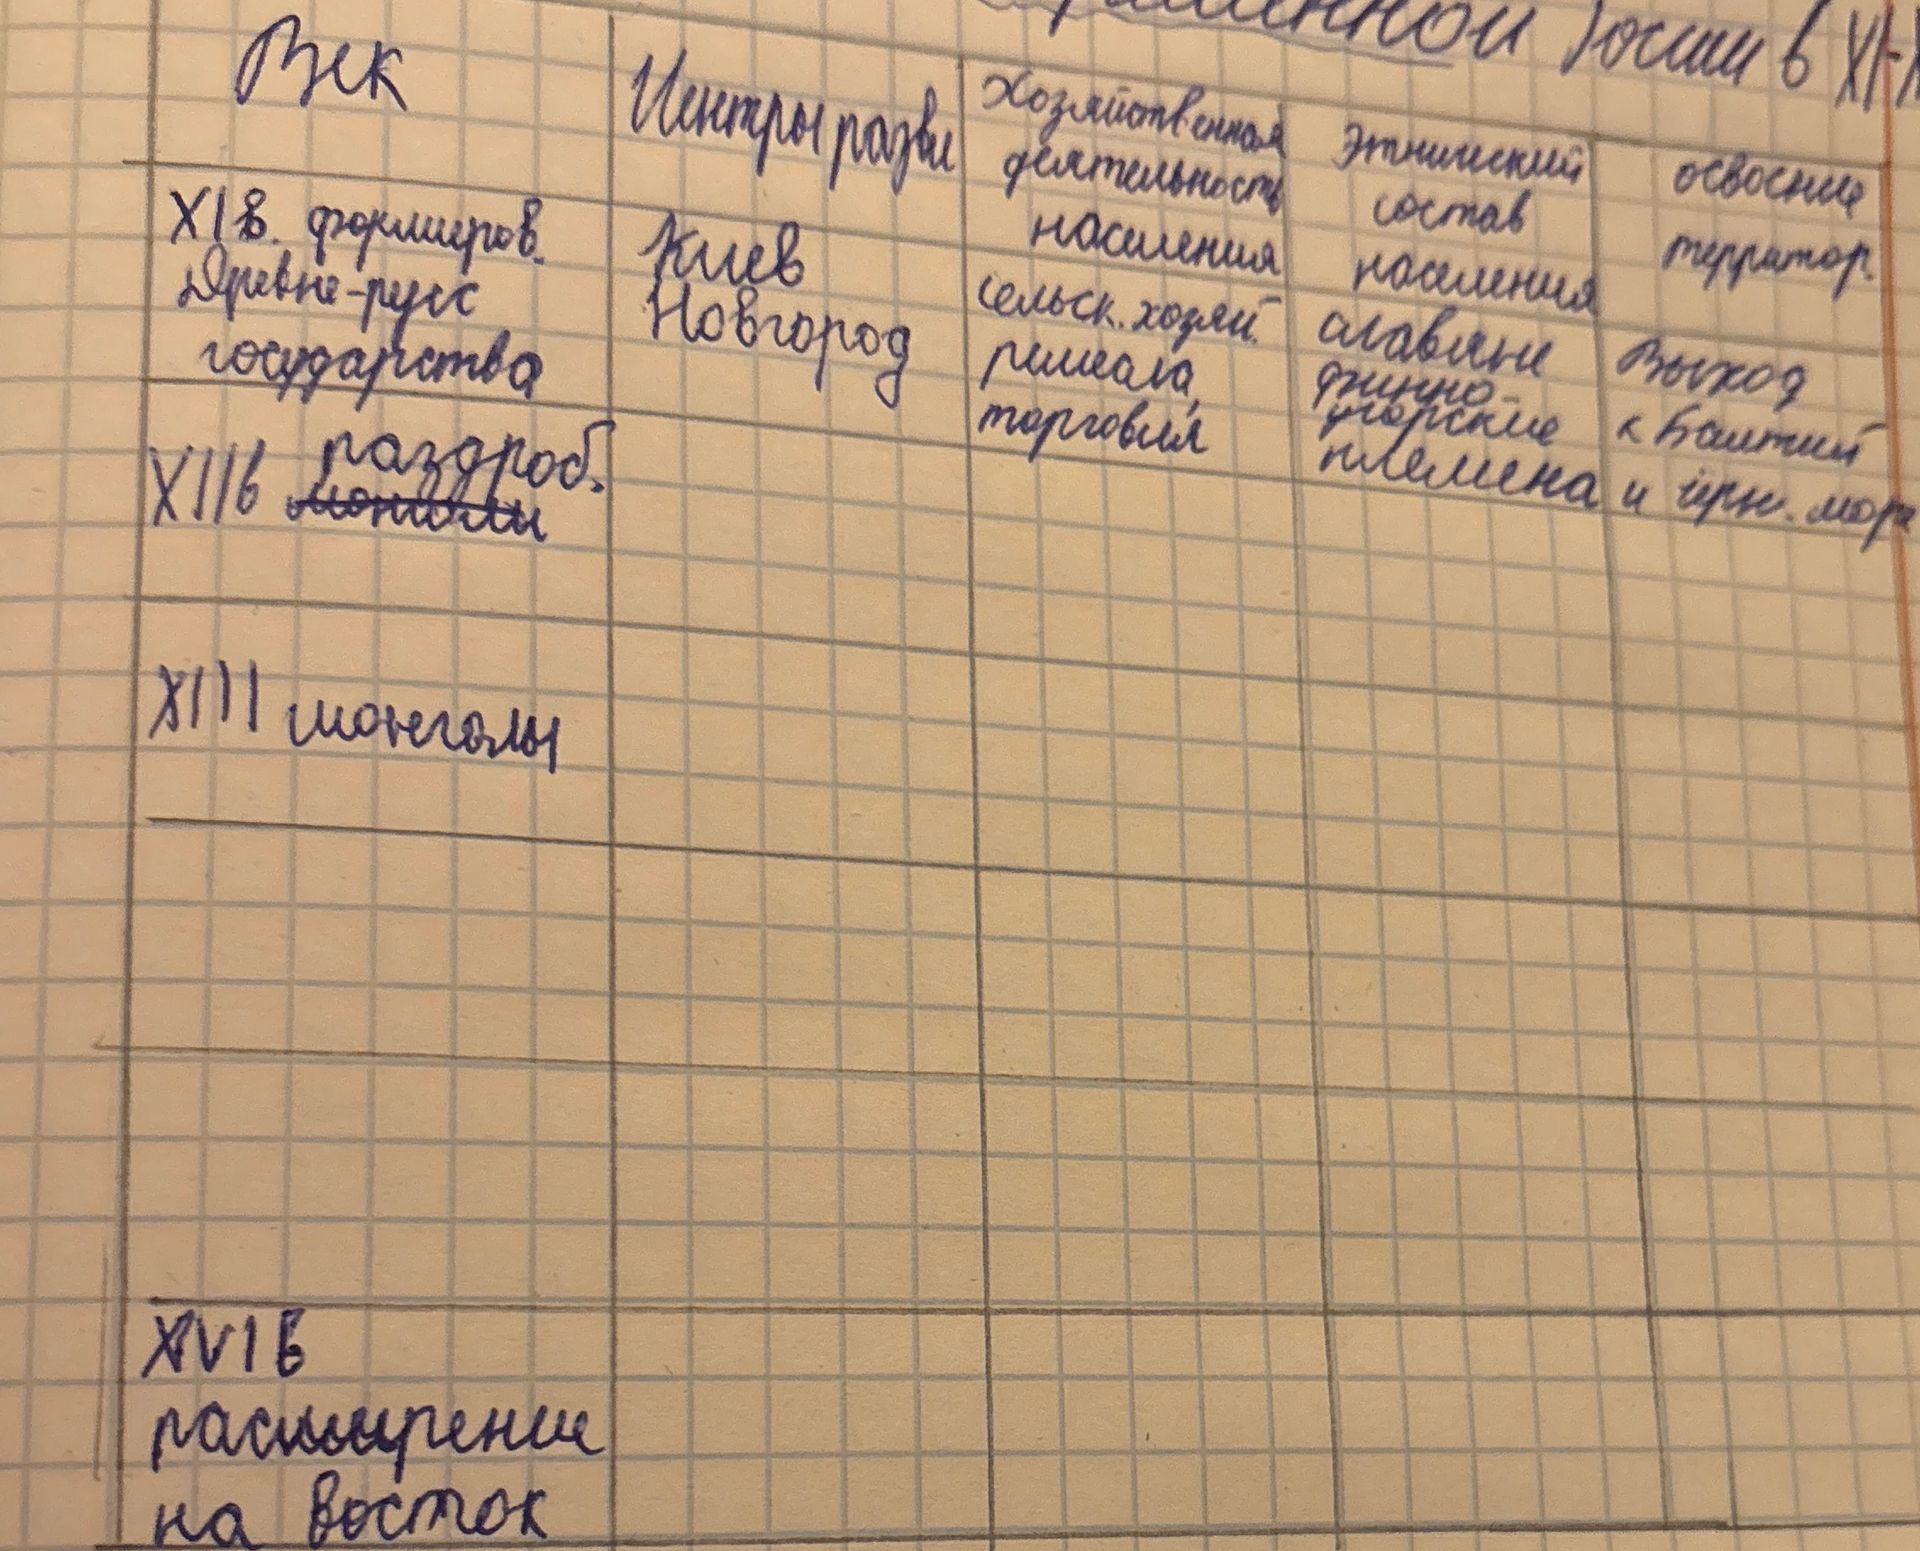 России в XI-X
Век
Центры разви
Хозяйственная
деятельность
населения
Этнический
состав
населения
освоение
территор.
XI в. формиров.
Древне-русс
государства
Киев
Новгород
сельск. хозяй.
ремесла,
торговля
славяне
финно-
угорские
племена
Выход
к Балтий
и черн. моря
XII в раздроб.
XIII монголы
XVI в
расширение
на восток